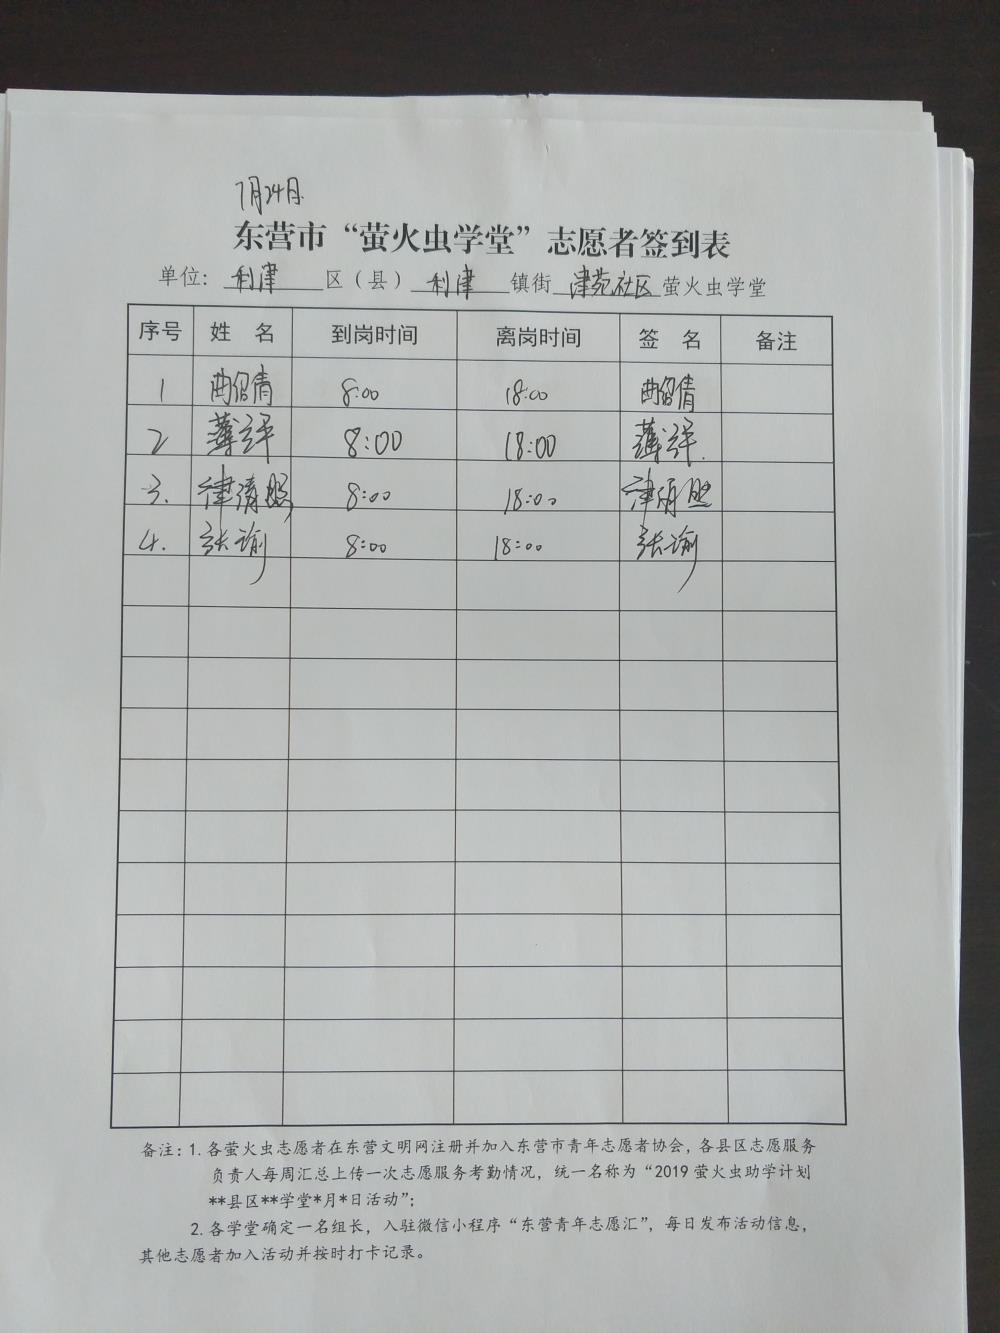 7月24日
东营市“萤火虫学堂”志愿者签到表
单位: 利津 区（县） 利津 镇街 津苑社区 萤火虫学堂
序号 姓 名 到岗时间 离岗时间 签 名 备注
1 曲绍倩 8:00 18:00 曲绍倩
2 薄 8:00 18:00 薄
3. 8:00 18:00
4. 张瑜 8:00 18:00 张瑜
备注：1. 各萤火虫志愿者在东营文明网注册并加入东营市青年志愿者协会，各县区志愿服务
负责人每周汇总上传一次志愿服务考勤情况，统一名称为“2019 萤火虫助学计划
**县区**学堂*月*日活动”；
2. 各学堂确定一名组长，入驻微信小程序“东营青年志愿汇”，每日发布活动信息，
其他志愿者加入活动并按时打卡记录。